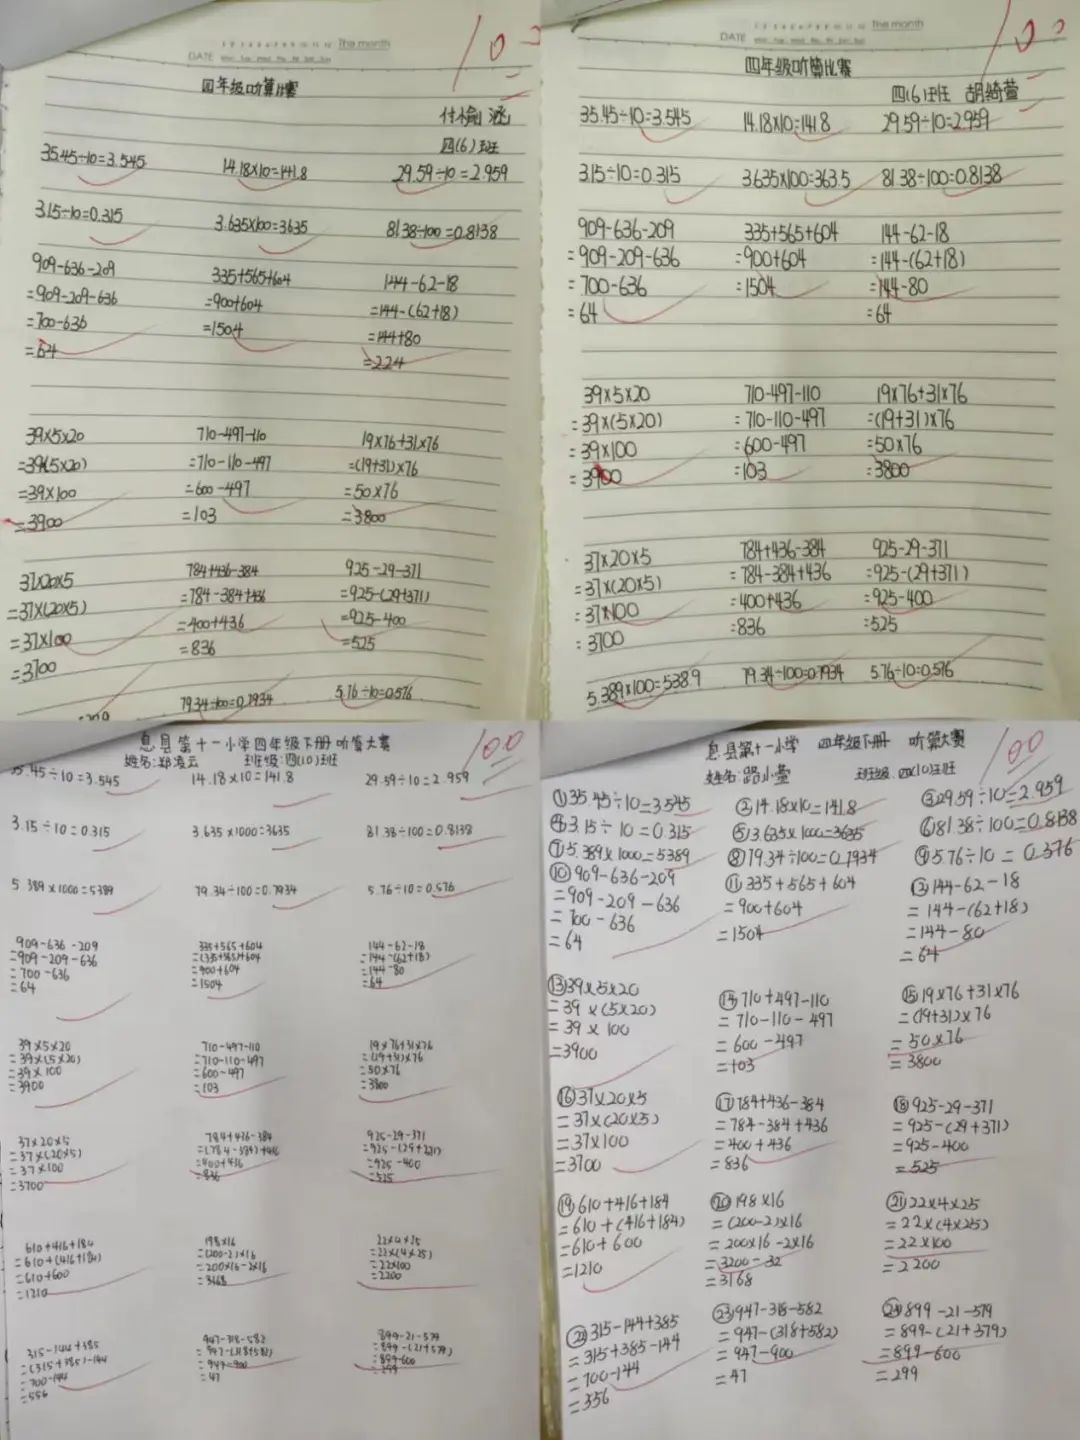 The month
DATE
100
四年级听算比赛
付榆涵
四(6)班
35.45÷10=3.545 14.18×10=141.8 29.59÷10=2.959
3.15÷10=0.315 3.635×100=3635 81.38÷100=0.8138
909-636-209 335+565+604 144-62-18
=909-209-636 =900+604 =144-(62+18)
=700-636 =1504 =144+80
=64 =224
39×5×20 710-497-110 19×76+31×76
=39(5×20) =710-110-497 =(19+31)×76
=39×100 =600-497 =50×76
=3900 =103 =3800
37×20×5 784+436-384 925-29-371
=37×(20×5) =784-384+436 =925-(29+371)
=37×100 =400+436 =925-400
=3700 =836 =525
79.34÷100=0.7934 5.76÷10=0.576
The month
DATE
100
四年级听算比赛
四(6)班 胡绮萱
35.45÷10=3.545 14.18×10=141.8 29.59÷10=2.959
3.15÷10=0.315 3.635×100=363.5 81.38÷100=0.8138
909-636-209 335+565+604 144-62-18
=909-209-636 =900+604 =144-(62+18)
=700-636 =1504 =144-80
=64 =64
39×5×20 710-497-110 19×76+31×76
=39×(5×20) =710-110-497 =(19+31)×76
=39×100 =600-497 =50×76
=3900 =103 =3800
37×20×5 784+436-384 925-29-371
=37×(20×5) =784-384+436 =925-(29+371)
=37×100 =400+436 =925-400
=3700 =836 =525
5.389×100=538.9 79.34÷100=0.7934 5.76÷10=0.576
息县第十一小学四年级下册听算大赛
100
姓名:郑凌云 班级:四(10)班
35.45÷10=3.545 14.18×10=141.8 29.59÷10=2.959
3.15÷10=0.315 3.635×1000=3635 81.38÷100=0.8138
5.389×1000=5389 79.34÷100=0.7934 5.76÷10=0.576
909-636-209 335+565+604 144-62-18
=909-209-636 =(335+565)+604 =144-(62+18)
=700-636 =900+604 =144-80
=64 =1504 =64
39×5×20 710-497-110 19×76+31×76
=39×(5×20) =710-110-497 =(19+31)×76
=39×100 =600-497 =50×76
=3900 =103 =3800
37×20×5 784+436-384 925-29-371
=37×(20×5) =(784-384)+436
=37×100 =400+436 =925-400
=3700 =836 =525
610+416+184 198×16 22×4×25
=610+(416+184) =(200-2)×16 =22×(4×25)
=610+600 =200×16-2×16 =22×100
=1210 =3168 =2200
315-144+385 947-318-582 899-21-579
=(315+385)-144 =947-(318+582) =899-(21+579)
=700-144 =947-900 =899-600
=556 =47 =299
息县第十一小学 四年级下册 听算大赛
100
姓名:路小曼 班级:四(10)班
①35.45÷10=3.545 ②14.18×10=141.8 ③29.59÷10=2.959
④3.15÷10=0.315 ⑤3.635×1000=3635 ⑥81.38÷100=0.8138
⑦5.389×1000=5389 ⑧79.34÷100=0.7934 ⑨5.76÷10=0.576
⑩909-636-209 ⑪335+565+604 ⑫144-62-18
=909-209-636 =900+604 =144-(62+18)
=700-636 =1504 =144-80
=64 =64
⑬39×5×20 ⑭710+497-110 ⑮19×76+31×76
=39×(5×20) =710-110-497 =(19+31)×76
=39×100 =600-497 =50×76
=3900 =103 =3800
⑯37×20×5 ⑰784+436-384 ⑱925-29-371
=37×(20×5) =784-384+436 =925-(29+371)
=37×100 =400+436 =925-400
=3700 =836 =525
⑲610+416+184 ⑳198×16 ㉑22×4×25
=610+(416+184) =(200-2)×16 =22×(4×25)
=610+600 =200×16-2×16 =22×100
=1210 =3200-32 =2200
=3168
㉒315-144+385 ㉓947-318-582 ㉔899-21-579
=315+385-144 =947-(318+582) =899-(21+579)
=700-144 =947-900 =899-600
=556 =47 =299